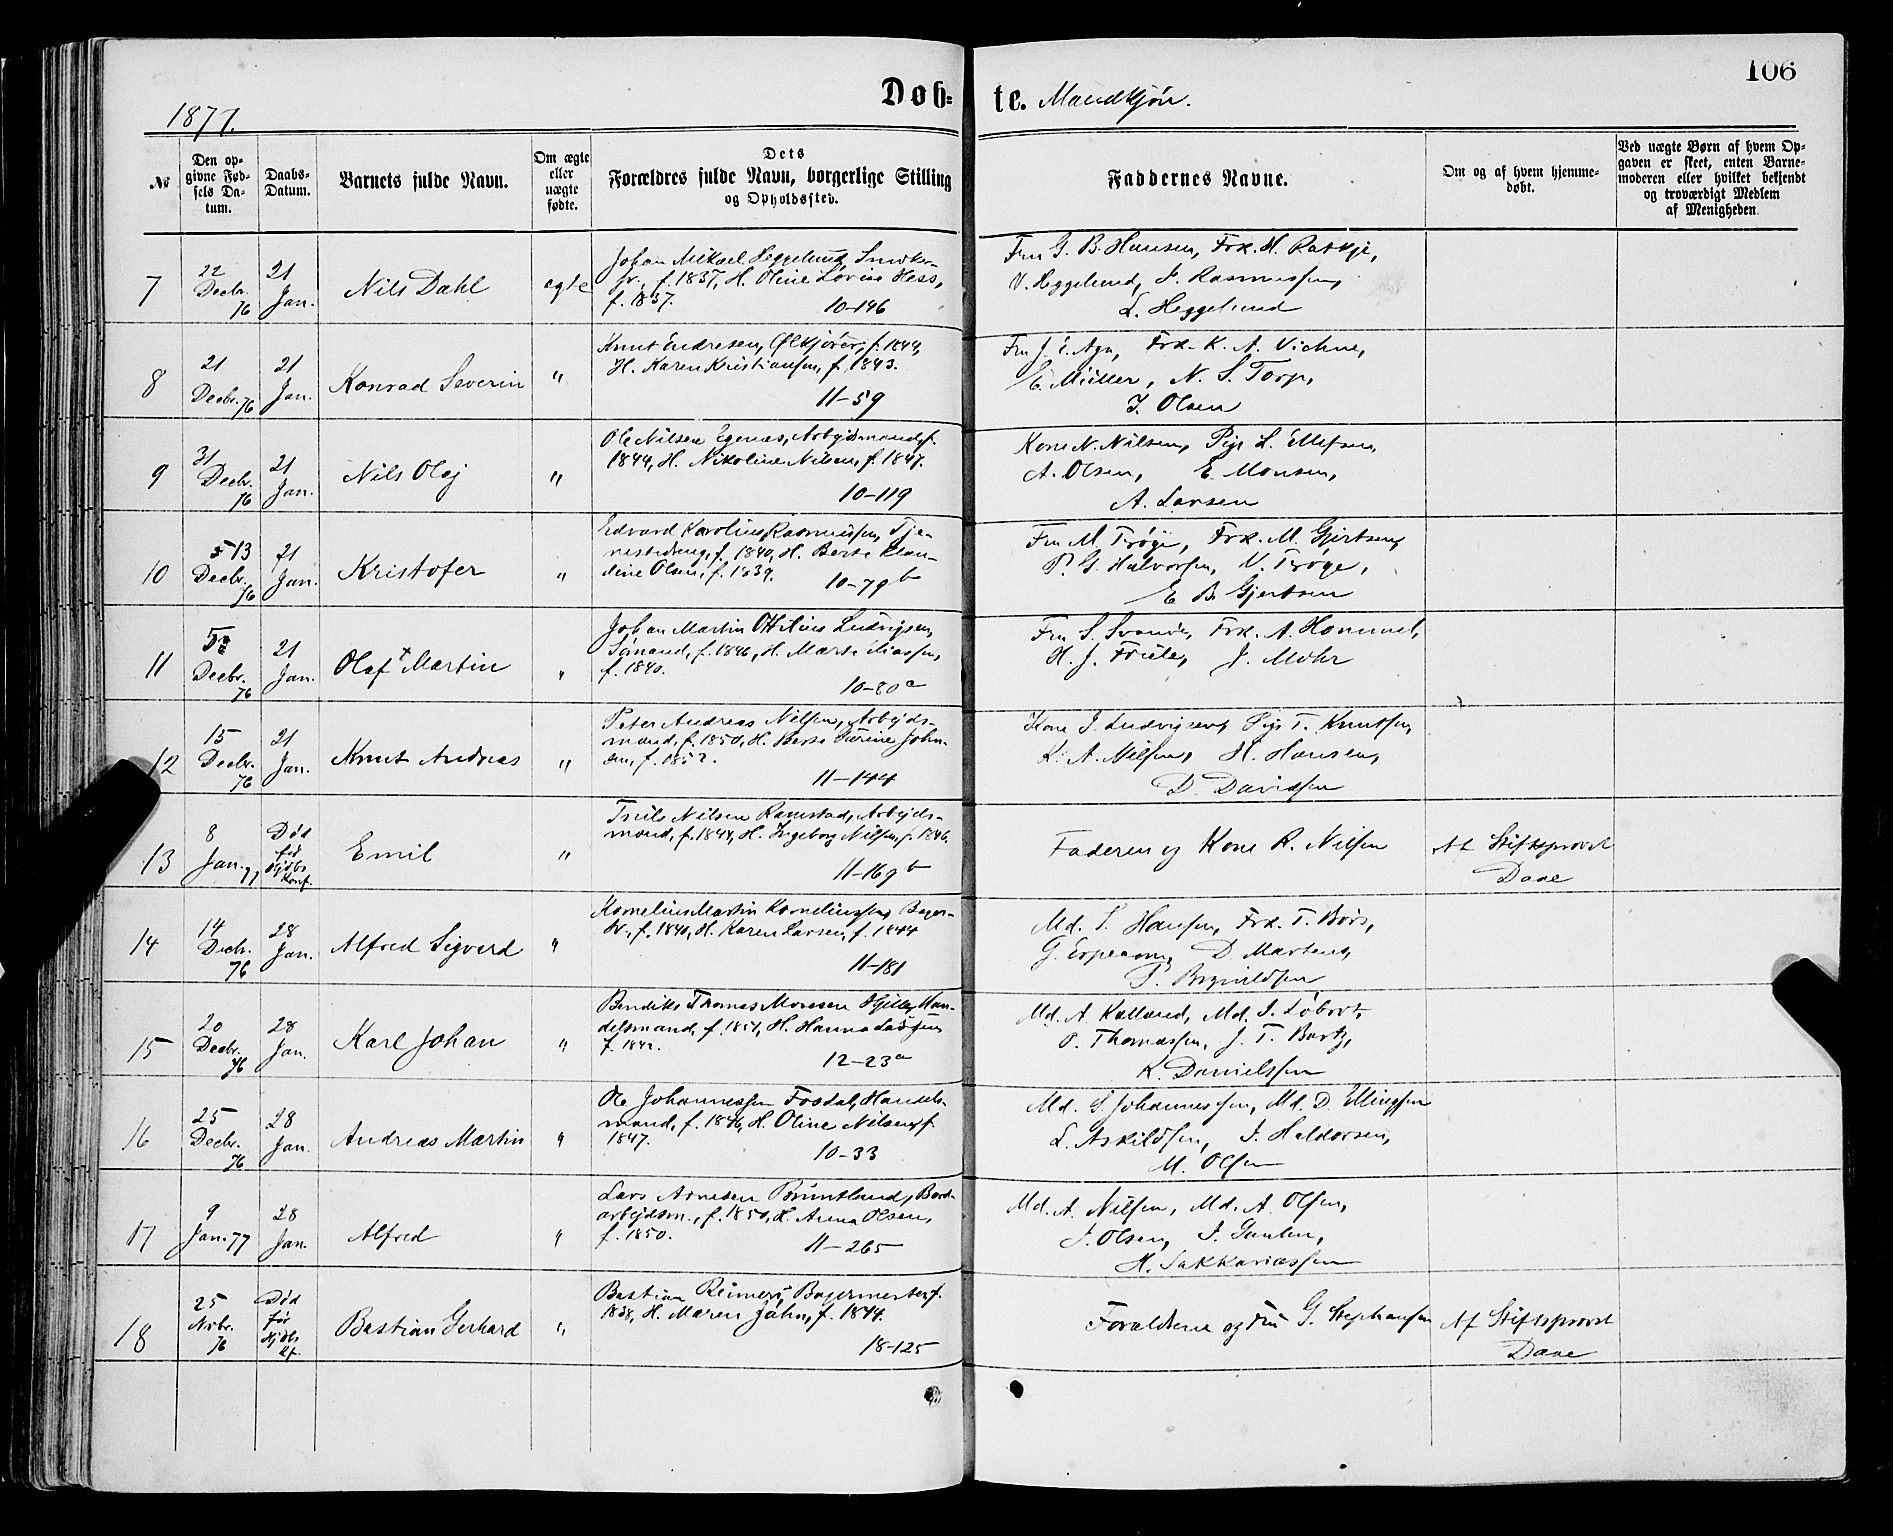 106
1877.
Døb= te. Mandkjøn.
№
Den op-
givne Fød-
sels Da-
tum.
Daabs-
Datum.
Barnets fulde Navn.
Om ægte
eller
uægte
fødte.
Dets
Forældres fulde Navn, borgerlige Stilling
og Opholdssted.
Faddernes Navne.
Om og af hvem hjemme-
døbt.
Ved uægte Børn af hvem Op-
gaven er skeet, enten Barne-
moderen eller hvilket bekjendt
og troværdigt Medlem
af Menigheden.
7
22
Decbr.
76
21
Jan.
Nils Dahl
egte
Johan Mikael Heggelund, Snedker-
f. 1837, H. Oline Lovise Hess,
f. 1837.
10-146
Fru G. B. Hansen, Frk. H.
V. Heggelund, F. Rasmussen,
L. Heggelund
8
21
Decbr. 76
21
Jan.
Konrad Severin
"
Knut Endresen, Ølkjører, f. 1844,
H. Karen Kristiansen, f. 1843.
11-59
Fru J. E. Frk. K. A.
E. Müller, N. S. Torp,
J. Olsen
9
31
Decbr.
76
21
Jan.
Nils Olaj
"
Ole Nilsen Egenæs, Arbeidsmand, f.
1844, H. Nikoline Nilsen, f. 1847.
10-119
Kone N. Nilsen, Pige L. Ellefsen,
A. Olsen, E. Monsen,
A. Larsen
10
5 13
Decbr.
76
21
Jan.
Kristofer
"
Edvard Karolius Rasmussen, Tje-
nestedreng, f. 1840, H. Berte Klau-
dine Olsen, f. 1839.
10-79 b
Fru M. Trøge, Frk. M. Gjertsen,
P. G. Halvorsen, V. Trøge,
E. B. Gjertsen
11
Decbr.
76
21
Jan.
Olaf Martin
"
Johan Martin Ottilius Ludvigsen,
Sømand, f. 1846, H. Marte Eliassen,
f. 1840.
10-80 a
Fru S. Frk. A. Hommel,
H. J. Friele, J. Mohr
12
15
Decbr.
76
21
Jan.
Knut Andreas
"
Peter Andreas Nilsen, Arbejds-
mand, f. 1850, H. Berte Gurine John-
sen, f. 1852.
11-144
Kone J. Ludvigsen, Pige T. Knutsen,
K. A. Nilsen, H. Hansen,
D. Davidsen
13
8
Jan. 77
Død
før
Hjdbs
Konf.
Emil
"
Truls Nilsen Ramstad, Arbejds-
mand, f. 1844, H. Ingeborg Nilsen, f. 1846.
11-169 b
Faderen og Kone R. Nilsen
Af Stiftsprovst
Daae
14
14
Decbr.
76
28
Jan.
Alfred Sigverd
"
Kornelius Martin Korneliussen, Bager-
sv., f. 1840, H. Karen Larsen, f. 1844
11-181
Md. S. Hansen, Frk. T. Børs,
G. D. Martens,
P. Brynildsen
15
20
Decbr.
76
28
Jan.
Karl Johan
"
Bendiks Thomas Monsen Han-
delsmand, f. 1851, H. Hanna
f. 1842.
12-23 a
Md. A. Kalland, Md. I.
O. Thomassen, J. T.
K. Danielssen
16
25
Decbr.
76
28
Jan.
Andreas Martin
"
Ole Johannessen Fosdal, Handels-
mand, f. 1846, H. Oline Nilsen, f.
1847.
10-33
Md. S. Johannessen, Md. D. Ellingsen
L. Askildsen, I. Haldorsen,
M. Olsen
17
9
Jan. 77
28
Jan.
Alfred
"
Lars Arnesen Bruntland, Bord-
arbejdsm., f. 1850, H. Anna Olsen,
f. 1850.
11-265
Md. A. Nilsen, Md. A. Olsen,
J. Olsen,
H. Sakkariassen
18
25
Nvbr.
76
Død
før
Hjdbs
Kf.
Bastian Gerhard
"
Bastian Reimers, Bagermester, f.
1838, H. Maren Jahn, f. 1844.
18-125
Forældrene og Fru G. Stephansen
Af Stiftsprovst
Daae